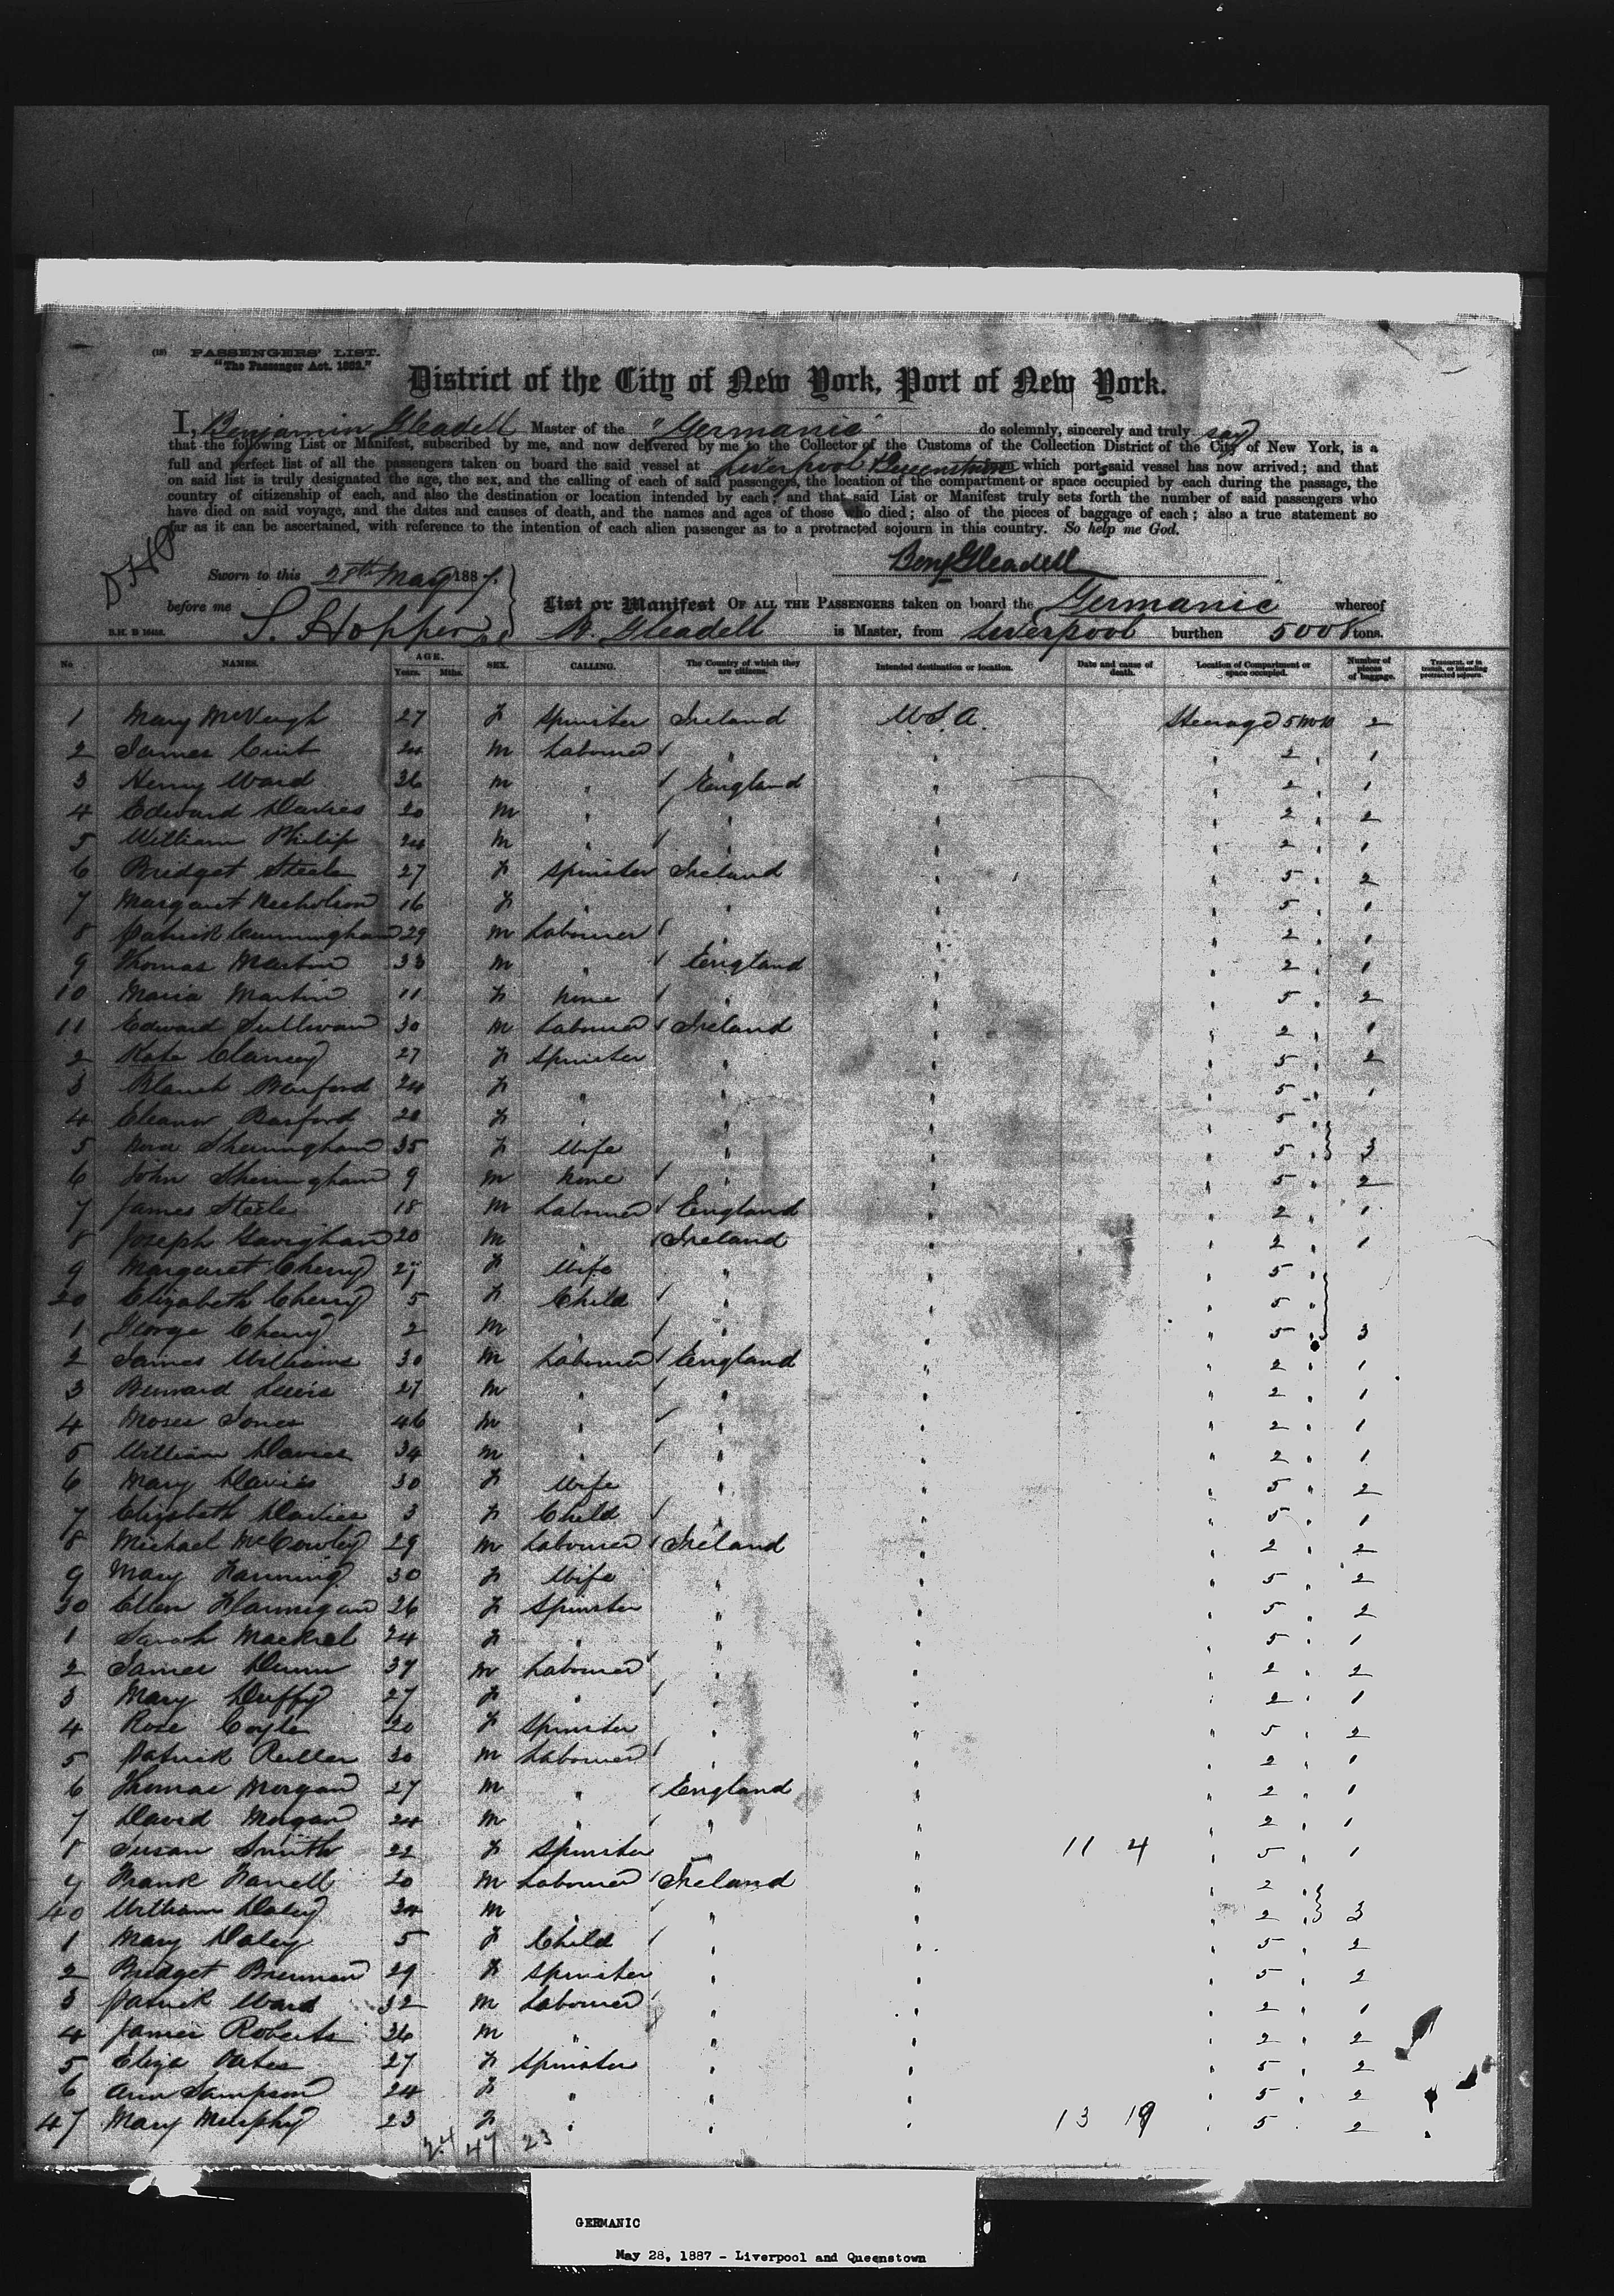 (18) PASSENGERS' LIST.
"The Passenger Act, 1882."
District of the City of New York, Port of New York.
I, Benjamin Gleadell Master of the "Germanic" do solemnly, sincerely and truly say
that the following List or Manifest, subscribed by me, and now delivered by me to the Collector of the Customs of the Collection District of the City of New York, is a
full and perfect list of all the passengers taken on board the said vessel at Liverpool Queenstown which ports said vessel has now arrived; and that
on said list is truly designated the age, the sex, and the calling of each of said passengers, the location of the compartment or space occupied by each during the passage, the
country of citizenship of each, and also the destination or location intended by each; and that said List or Manifest truly sets forth the number of said passengers who
have died on said voyage, and the dates and causes of death, and the names and ages of those who died; also of the pieces of baggage of each; also a true statement so
far as it can be ascertained, with reference to the intention of each alien passenger as to a protracted sojourn in this country. So help me God.
Benj Gleadell
Sworn to this 28th May 1887.
before me S. Hopper
List or Manifest OF ALL THE PASSENGERS taken on board the Germanic whereof
B. Gleadell is Master, from Liverpool burthen 5008 tons.
No NAMES. AGE. Years. Mths. SEX. CALLING. The Country of which they are citizens. Intended destination or location. Date and cause of death. Location of Compartment or space occupied. Number of pieces of baggage. Transient, or in transit, or intending protracted sojourn.
1 Mary McVeigh 27 F Spinster Ireland U.S.A. Steerage 5 2
2 James 24 M Labourer " " " 2 " 1
3 Henry Ward 26 M " England " " 2 " 1
4 Edward Davies 20 M " " " " 2 " 2
5 William Philip 24 M " " " " 2 " 1
6 Bridget Steele 27 F Spinster Ireland " " 5 " 2
7 Margaret Nicholson 16 F " " " " 5 " 1
8 Patrick Cunningham 29 M Labourer " " 2 " 1
9 Thomas Martin 33 M " England " " 2 " 1
10 Maria Martin 11 F None " " " 5 " 2
11 Edward Sullivan 30 M Labourer Ireland " " 2 " 1
2 Kate Clancey 27 F Spinster " " " 5 " 2
3 Blanch Barford 24 F " " " " 5 " 1
4 Eleanor Barford 20 F " " " 5
5 Nora Sheringham 35 F Wife " " " 5 3
6 John Sheringham 9 M None " " " 5 " 2
7 James Steele 18 M Labourer England " " 2 " 1
8 Joseph Gavighan 20 M " Ireland " " 2 " 1
9 Margaret Cherry F Wife " " " 5 "
20 Elizabeth Cherry 5 F Child " " " 5 "
1 George Cherry 2 M " " " " 5 " 3
2 James Williams 30 M Labourer England " " 2 " 1
3 Bernard Lewis 27 M " " " " 2 " 1
4 Moses Jones 46 M " " " " 2 " 1
5 William Davies 34 M " " " " 2 " 1
6 Mary Davies 30 F Wife " " " 5 " 2
7 Elizabeth Davies 3 F Child " " " 5 " 1
8 Michael McCowley 29 M Labourer Ireland " " 2 " 2
9 Mary Fanning 30 F Wife " " " 5 " 2
30 Ellen Flannigan 26 F Spinster " " " 5 " 2
1 Sarah Mackrel 24 F " " " " 5 " 1
2 James Dunn 37 M Labourer " " " 2 " 2
3 Mary Duffy 27 F " " " " 2 " 1
4 Rose Coyle 20 F Spinster " " " 5 " 2
5 Patrick 30 M Labourer " " " 2 " 1
6 Thomas Morgan 27 M " England " " 2 " 1
7 David Morgan 24 M " " " " 2 " 1
8 Susan Smith 22 F Spinster " " 11 4 " 5 " 1
9 Frank Farrell 20 M Labourer Ireland " " 2 "
40 William Daley 34 M " " " " 2 " 3
1 Mary Daley 5 F Child " " " 5 " 2
2 Bridget Brennan 29 F Spinster " " " 5 " 2
3 Patrick Ward 32 M Labourer " " " 2 " 1
4 James Roberts 26 M " " " " 2 " 2
5 Eliza Oates 27 F Spinster " " " 5 " 2
6 Ann Sampson 24 F " " " " 5 " 2
47 Mary Murphy 23 F " " " 13 19 " 5 " 2
24 47 23
GERMANIC
May 28, 1887 - Liverpool and Queenstown